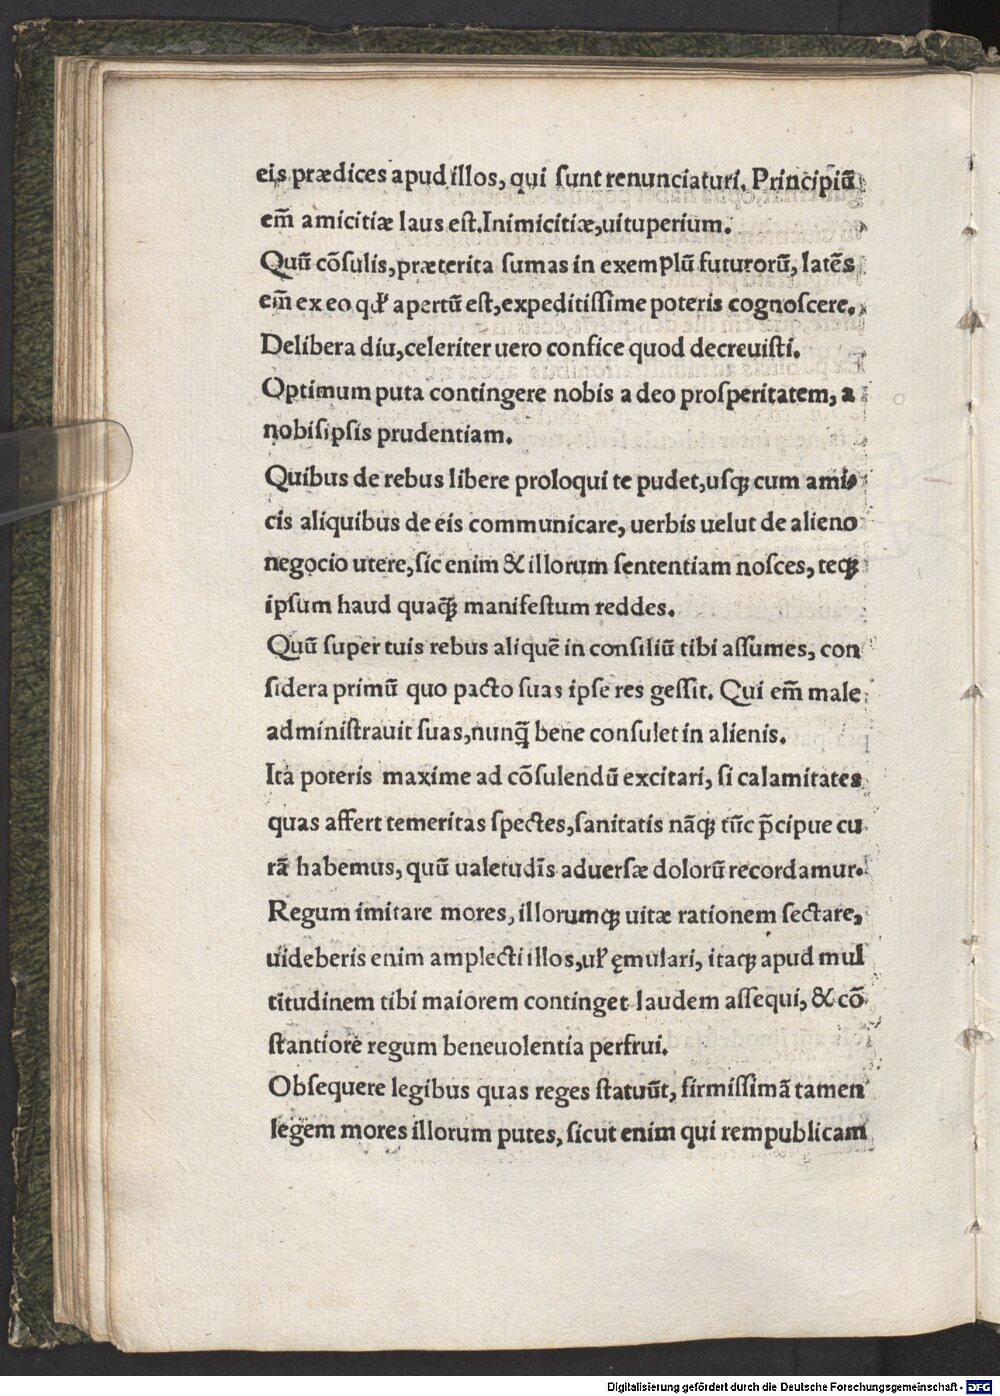 eis prædices apud illos, qui ſunt renunciaturi. Principiū
em̄ amicitiæ laus eſt. Inimicitiæ, uituperium.
Quū cōſulis, præterita ſumas in exemplū futurorū, latēs
em̄ ex eo qđ apertū eſt, expeditiſſime poteris cognoſcere.
Delibera diu, celeriter uero confice quod decreuiſti.
Optimum puta contingere nobis a deo proſperitatem, a
nobiſipſis prudentiam.
Quibus de rebus libere proloqui te pudet, uſqꝫ cum ami-
cis aliquibus de eis communicare, uerbis uelut de alieno
negocio utere, ſic enim & illorum ſententiam noſces, teqꝫ
ipſum haud quaq̄ꝫ manifeſtum reddes.
Quū ſuper tuis rebus aliquē in conſiliū tibi aſſumes, con
ſidera primū quo pacto ſuas ipſe res geſſit. Qui em̄ male
adminiſtrauit ſuas, nunq̄ bene conſulet in alienis.
Ita poteris maxime ad cōſulendū excitari, ſi calamitates
quas affert temeritas ſpectes, ſanitatis nāqꝫ tūc p̄cipue cu
rā habemus, quū ualetudīs aduerſæ dolorū recordamur.
Regum imitare mores, illorumqꝫ uitæ rationem ſectare,
uideberis enim amplecti illos, uł ęmulari, itaqꝫ apud mul
titudinem tibi maiorem continget laudem aſſequi, & cō
ſtantiore regum beneuolentia perfrui.
Obſequere legibus quas reges ſtatuūt, firmiſſimā tamen
legem mores illorum putes, ſicut enim qui rempublicam
Digitalisierung gefördert durch die Deutsche Forschungsgemeinschaft - DFG